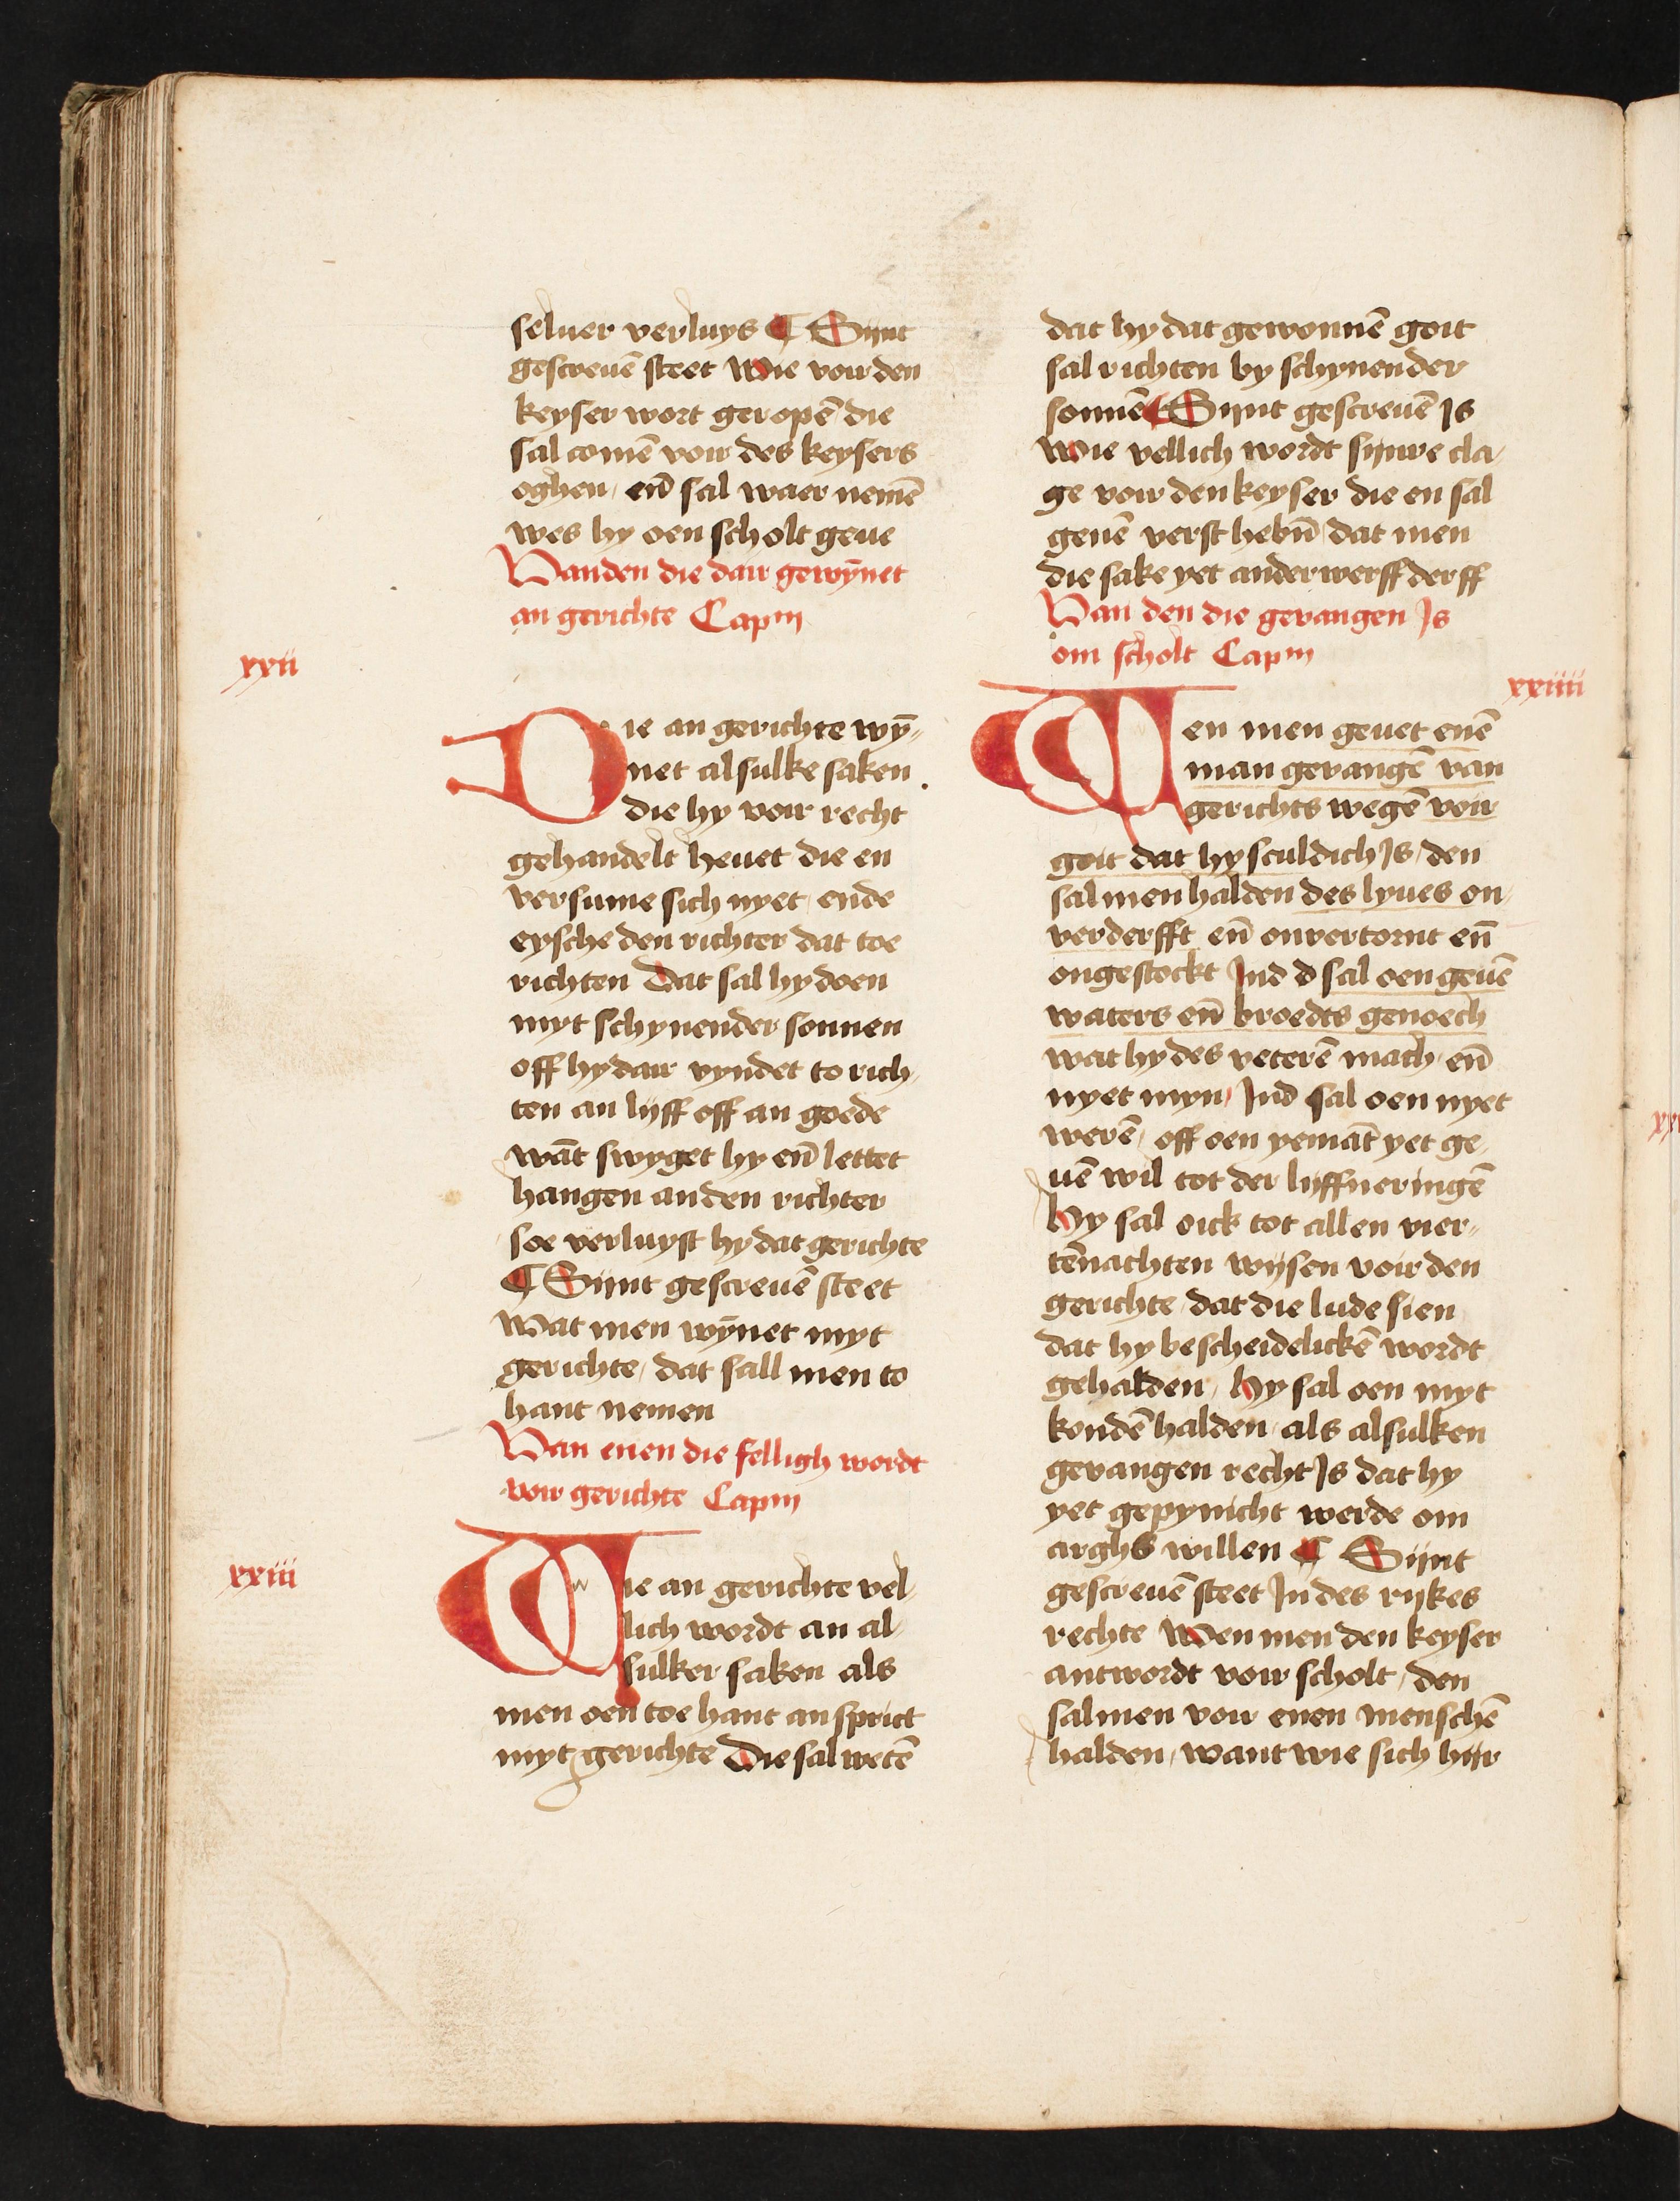 seluer verluys ¶ Sijnt
gescreuē steet Wie voir den
keyser wort geropē die
sal comē voir des keysers
oghen / eñ sal waer nemē
wes hy oen scholt geue
Van den die dair gewȳnet
an gerichte Capm
xxii
Die an gerichte wȳ-
net alsulke saken
die hy voir recht
gehandelt heuet die en
versume sich nyet / ende
eysche den richter dat toe
richten Dat sal hy doen
myt schynender sonnen
off hy dair vyndet to rich-
ten an lijff off an goede
wāt swyget hy eñ lettet
hangen an den richter
soe verluyst hy dat gerichte
¶ Sijnt gescreuē steet
Wat men wȳnet myt
gerichte / dat sall men to
hant nemen
Van enen die felligh wordt
voir gerichte Capm
xxiii
Wie an gerichte vel-
lich wordt an al-
sulker saken als
men oen toe hant an sprict
myt gerichte Die sal wetē
dat hy dat gewonnē goit
sal richten by schynender
sonnē ¶ Sijnt gescreuē Is
Wie vellich wordt sijnre cla-
ge voir den keyser die en sal
genē verst hebn̄ dat men
die sake yet anderwerff derff
Van den die gevangen Is
om scholt Capm
xxiiii
Wen men geuet enē
man gevangē van
gerichts wegē voir
goit dat hy sculdich Is / den
sal men halden des lyues on-
verderfft eñ onvertornt eñ
ongestockt Ind d sal oen geuē
waters eñ broedts genoech
wat hy des veterē mach / eñ
nyet myn / Ind sal oen nyet
werē / off oen yemāt yet ge-
uē wil tot der lijffneringē
Hy sal oick tot allen vier-
tēnachten wijsen voir den
gerichte / dat die lude sien
dat hy bescheidelickē wordt
gehalden / Hy sal oen myt
kondē halden / als alsulken
gevangen recht Is dat hy
yet gepynicht werde om
arghs willen ¶ Sijnt
gescreuē steet In des rijkes
rechte Wen men den keyser
antwordt voir scholt / den
sal men voir enen menschē
halden / want wie sich hijr